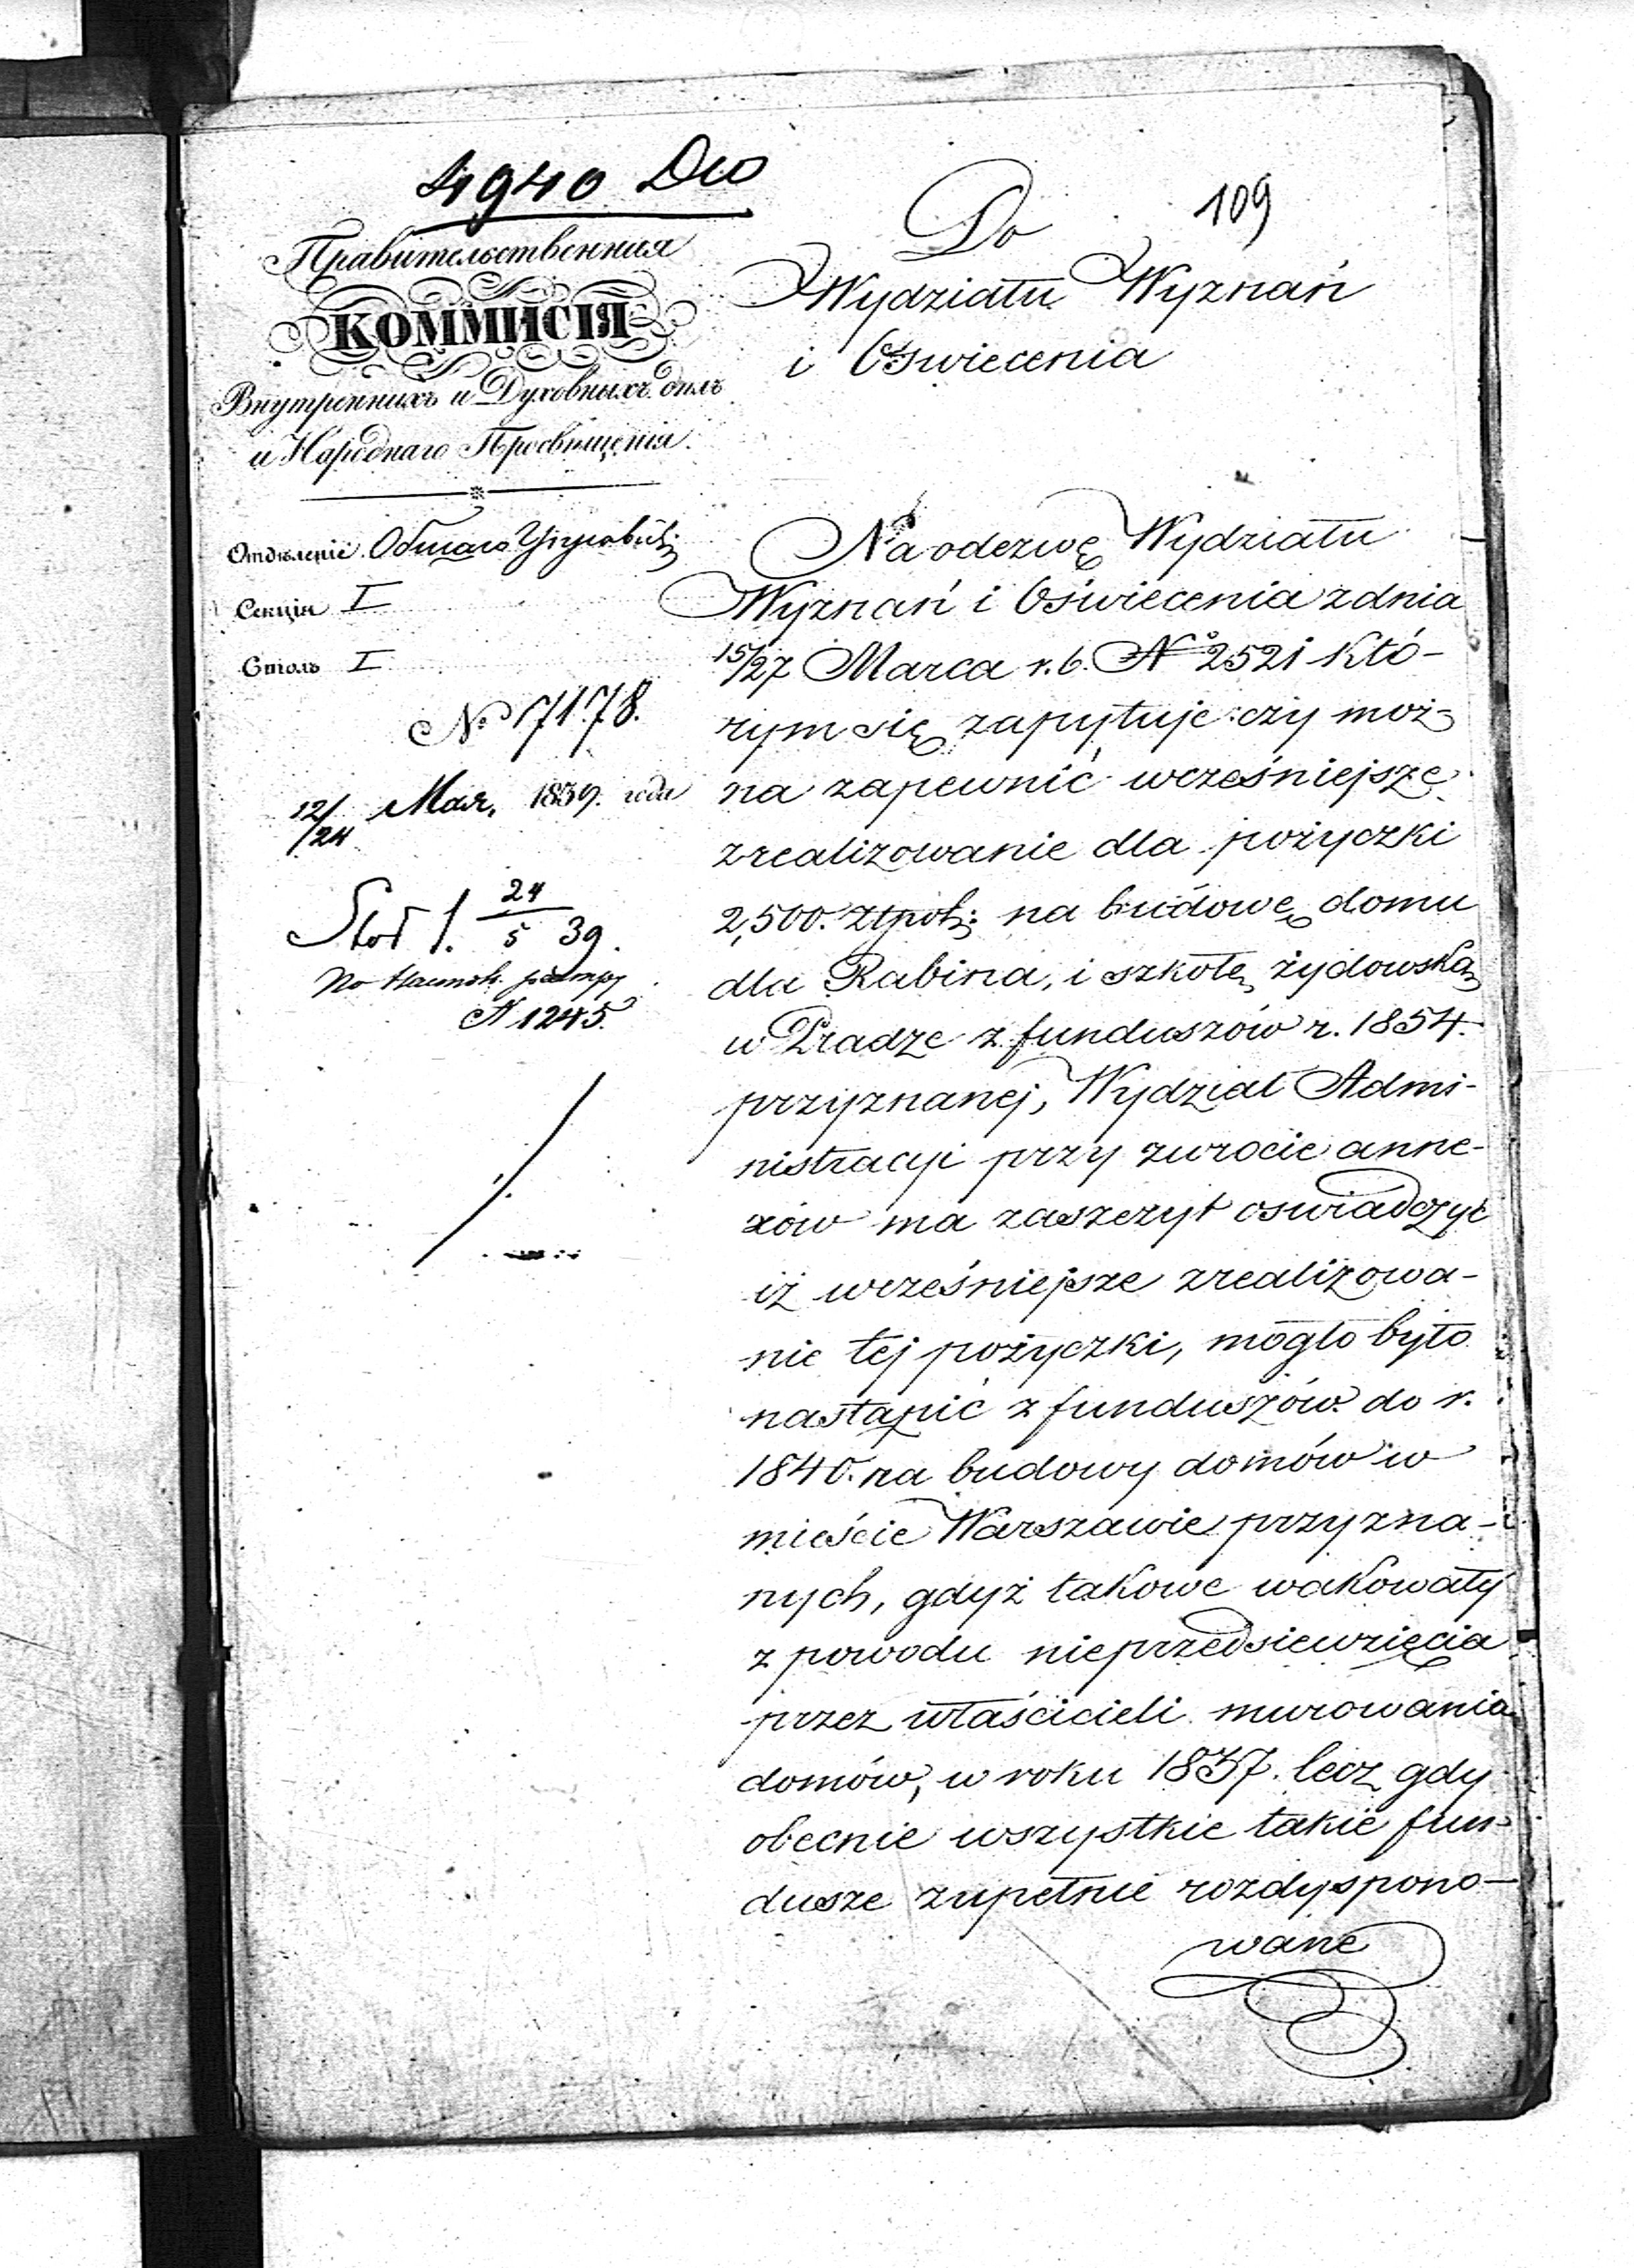 4940 Dw
109
Правительственная
КОММИСІЯ
Внутреннихъ и Духовныхъ дѣлъ
и Народнаго Просвѣщенія.
Отдѣленіе Общаго
Секція I
Столъ I
№ 17178.
12/24 Мая, 1839. года
Stoł 1. 24/5 39.
№ 1245.
Do
Wydziału Wyznań
i Oswiecenia
Na odezwę Wydziału
Wyznań i Oświecenia z dnia
15/27 Marca r. b. No 2521 któ-
rym się zapytuje czy moż-
na zapewnić wcześniejsze
zrealizowanie dla pożyczki
2,500. złpol: na budowę domu
dla Rabina, i szkołę żydowską
w Pradze z funduszów r. 1854.
przyznanej, Wydział Admi-
nistracyi przy zwrocie anne-
xów ma zaszczyt oswiadczyć
iż wcześniejsze zrealizowa-
nie tej pożyczki, mogło było
nastąpić z funduszów do r.
1840. na budowy domów w
mieście Warszawie przyzna-
nych, gdyż takowe wakowały
z powodu nieprzedsiewzięcia
przez właścicieli murowania
domów, w roku 1837. lecz gdy
obecnie wszystkie takie fun-
dusze zupełnie rozdyspono-
wane